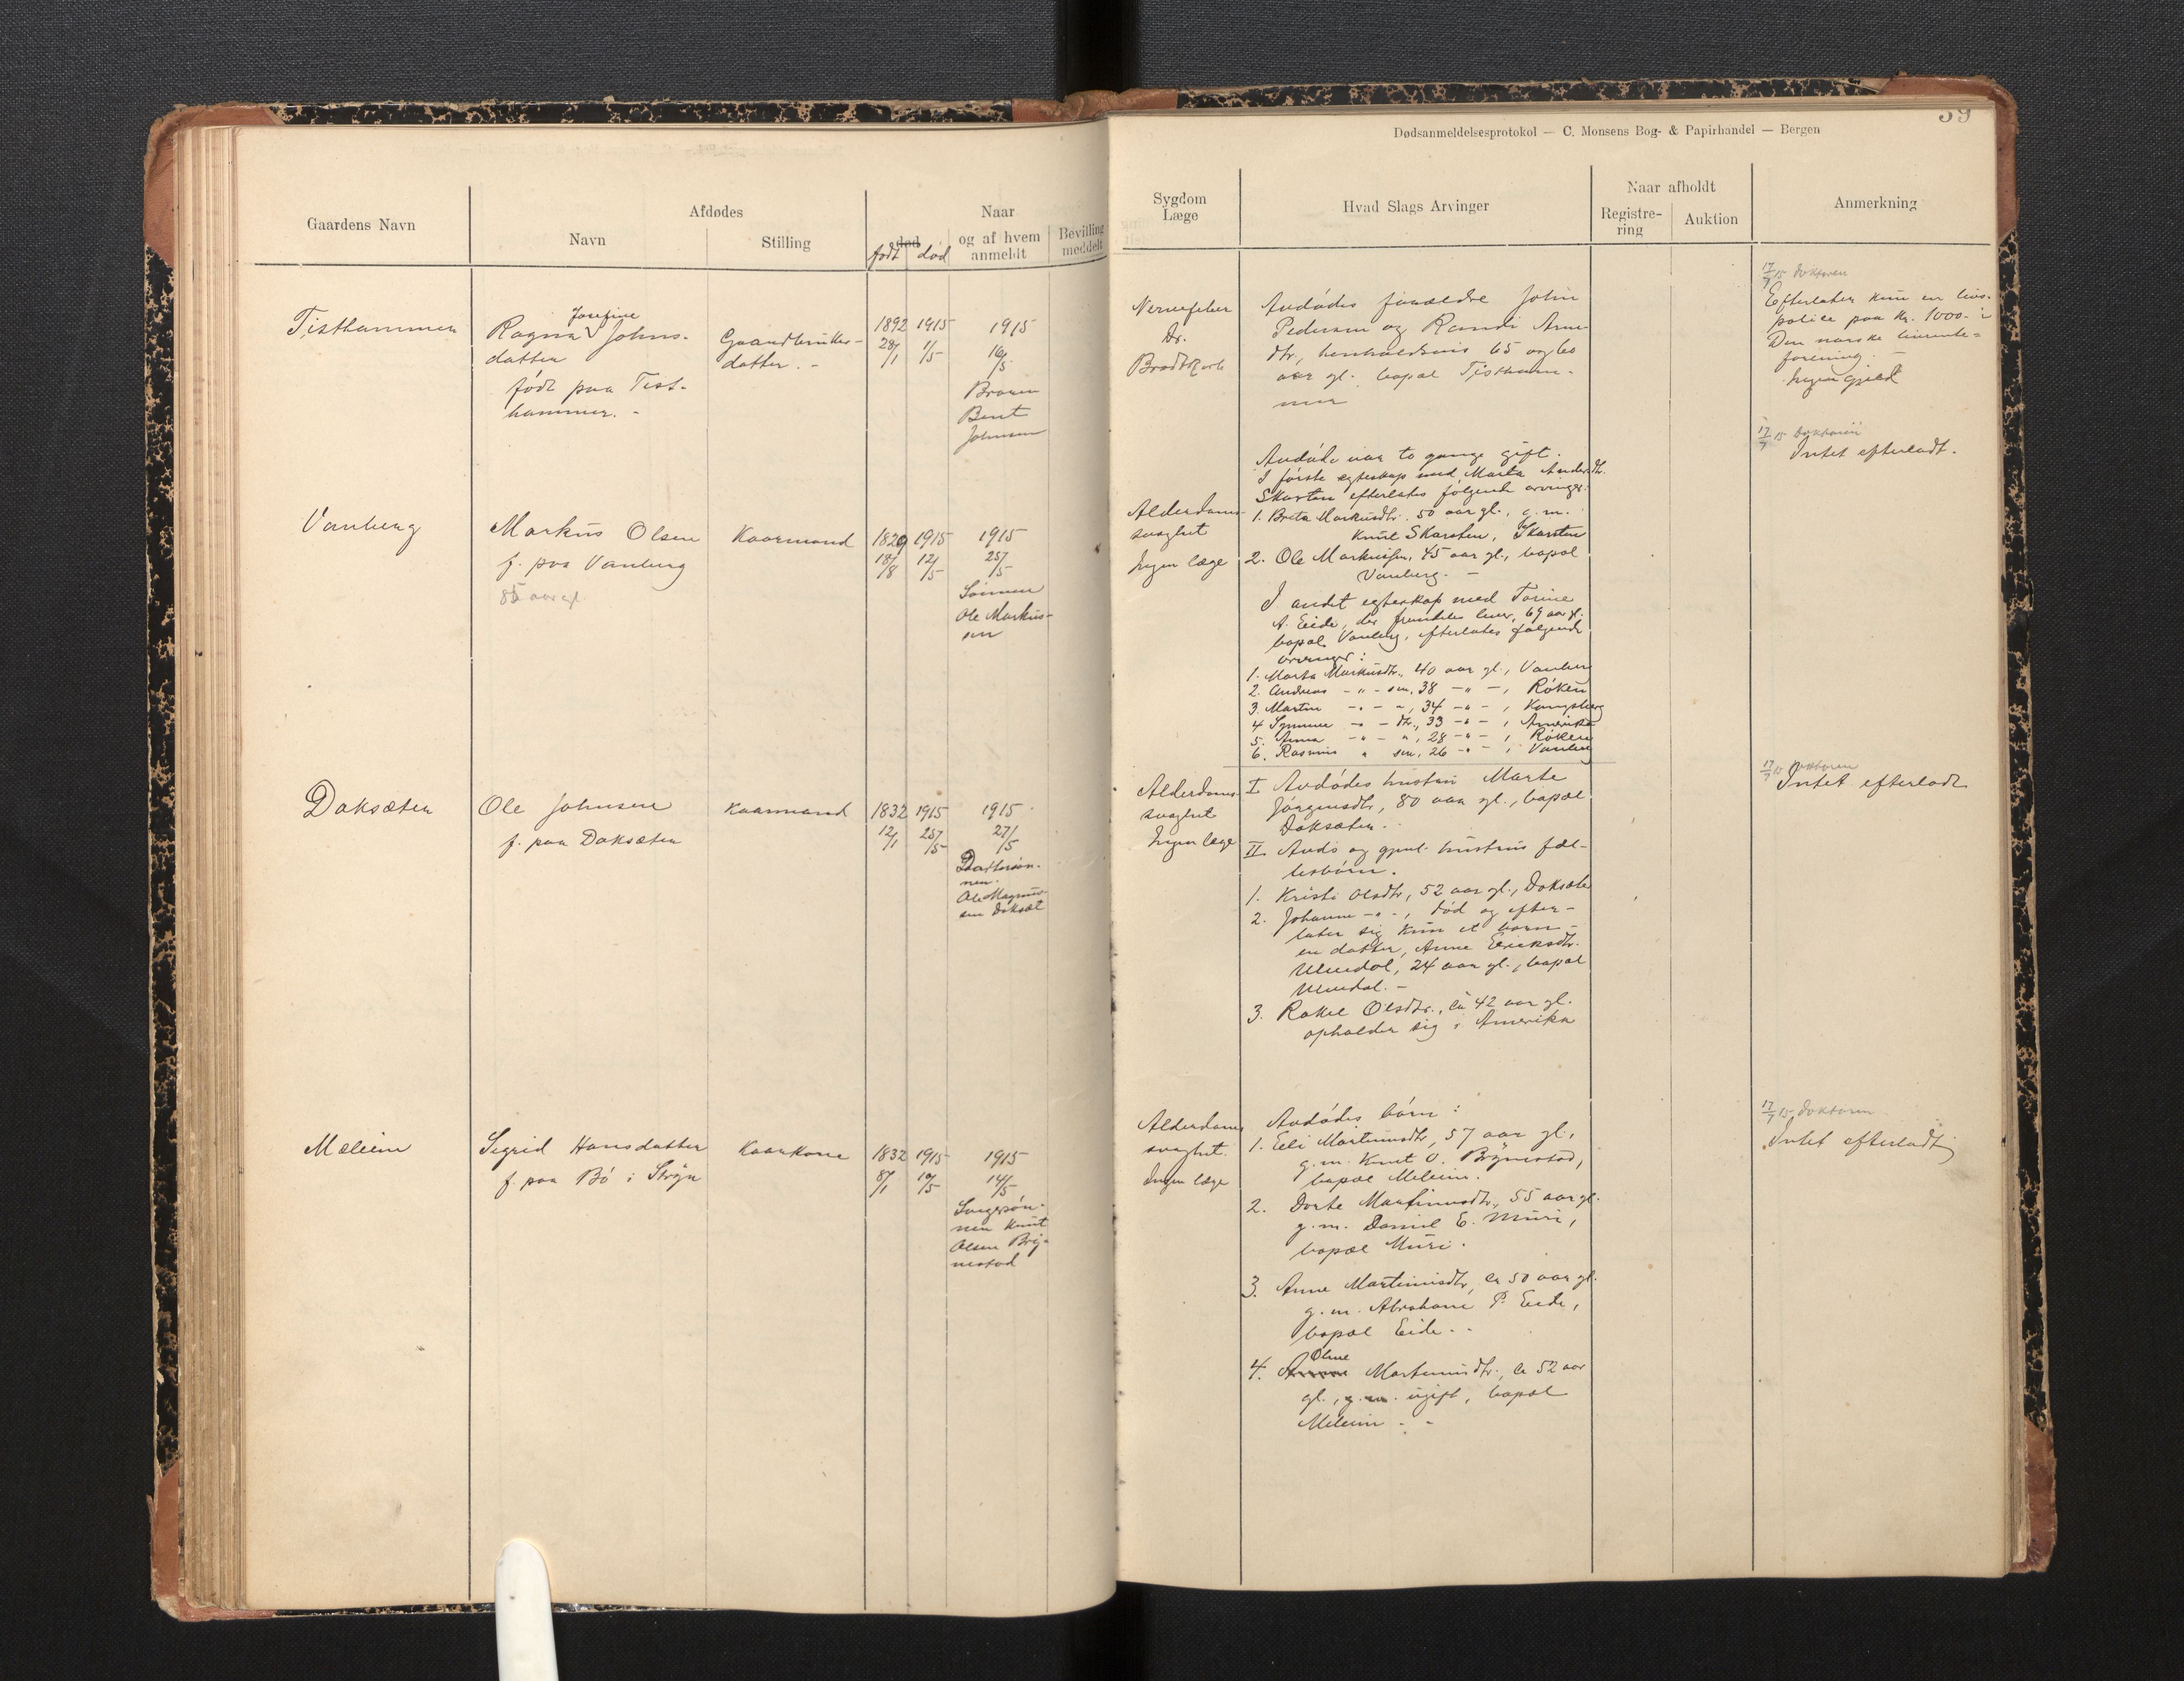 59
Dødsanmeldelsesprotokol — C. Monsens Bog- & Papirhandel — Bergen
Gaardens Navn
Afdødes
Navn
Stilling
Naar
død
født død
og af hvem
anmeldt
Bevilling
meddelt
Sygdom
Læge
Hvad Slags Arvinger
Naar afholdt
Registre-
ring
Auktion
Anmerkning
Tisthammer
Josefine
Ragna Johns-
datter
født paa Tist-
hammer. -
Gaardbruker-
datter. -
1892 1915
28/1 1/5
1915
16/5
Broren
Bent
Johnsen
Nervefeber
Dr.
Avdødes forældre John
Pedersen og Randi Arne-
dtr, henholdsvis 65 og 60
aar gl. bopæl Tistham-
mer
17/7 15 doktoren
Efterlater kun en livs-
police paa Kr. 1000.- i
Den norske livrente-
forening. -
Ingen gjæld
Vanberg
Markus Olsen
f. paa Vanberg
85 aar gl.
Kaarmand
1829 1915
18/8 12/5
1915
25/5
Sønnen
Ole Markus-
sen
Alderdoms-
svaghet
Ingen læge
Avdøde var to gange gift.
I første egteskap med Marta Andersdtr.
Skarsten efterlates følgende arvinger:
1. Breta Markusdtr. 50 aar gl., g. m.
Knut Skarsten, Skarsten
2. Ole Markussen, 45 aar gl., bopæl
Vanberg. -
I andet egteskap med Torine
A. Eide, der fremdeles lever, 69 aar gl.
bopæl Vanberg, efterlates følgende
arvinger:
1. Marta Markusdtr., 40 aar gl., Vanberg
2. Andreas - " - sen, 38 - " - , Røken
3. Martin - " - " , 34 - " - , Kongsberg
4. Synneve - " - dtr., 33 - " - , Amerika
5. Anna - " - " , 28 - " - , Røken
6. Rasmus " sen, 26 - " - , Vanberg
17/7 15 Doktoren
Intet efterladt.
Doksæter
Ole Johnsen
f. paa Doksæter
Kaarmand
1832 1915
12/1 25/5
1915
27/5
Dattersøn-
nen
Ole Magnus-
sen Doksæt
Alderdoms-
svaghet
Ingen læge
I Avdødes hustru Marte
Jørgensdtr, 80 aar gl., bopæl
Doksæter. -
II Avdø og gjenl. hustrus fæl-
lesbørn.
1. Kristi Olsdtr, 52 aar gl., Doksæter
2. Johanne - " - , død og efter-
later sig kun et barn -
en datter, Anne Eriksdtr.
24 aar gl., bopæl
3. Rakel Olsdtr., ca 42 aar gl.
opholder sig i Amerika
17/7 15 Doktoren
Intet efterladt
Meleim
Sigrid Hansdatter
f. paa Bø i Stryn
Kaarkone
1832 1915
8/1 10/5
1915
14/5
Svigersøn-
nen Knut
Olsen Bry-
nestad
Alderdoms
svaghet.
Ingen læge
Avdødes børn:
1. Eli Martinusdtr, 57 aar gl.,
g. m. Knut O. Brynestad,
bopæl Meleim.
2. Dorte Martinusdtr, 55 aar gl.
g. m. Daniel E. Muri,
bopæl Muri.
3. Anne Martinusdtr, ca 50 aar gl.
g. m. Abraham P. Eide,
bopæl Eide. -
Oline
4. Anne Martinusdtr, ca 52 aar
gl., g. m. ugift, bopæl
Meleim - -
17/7 15 doktoren
Intet efterladt